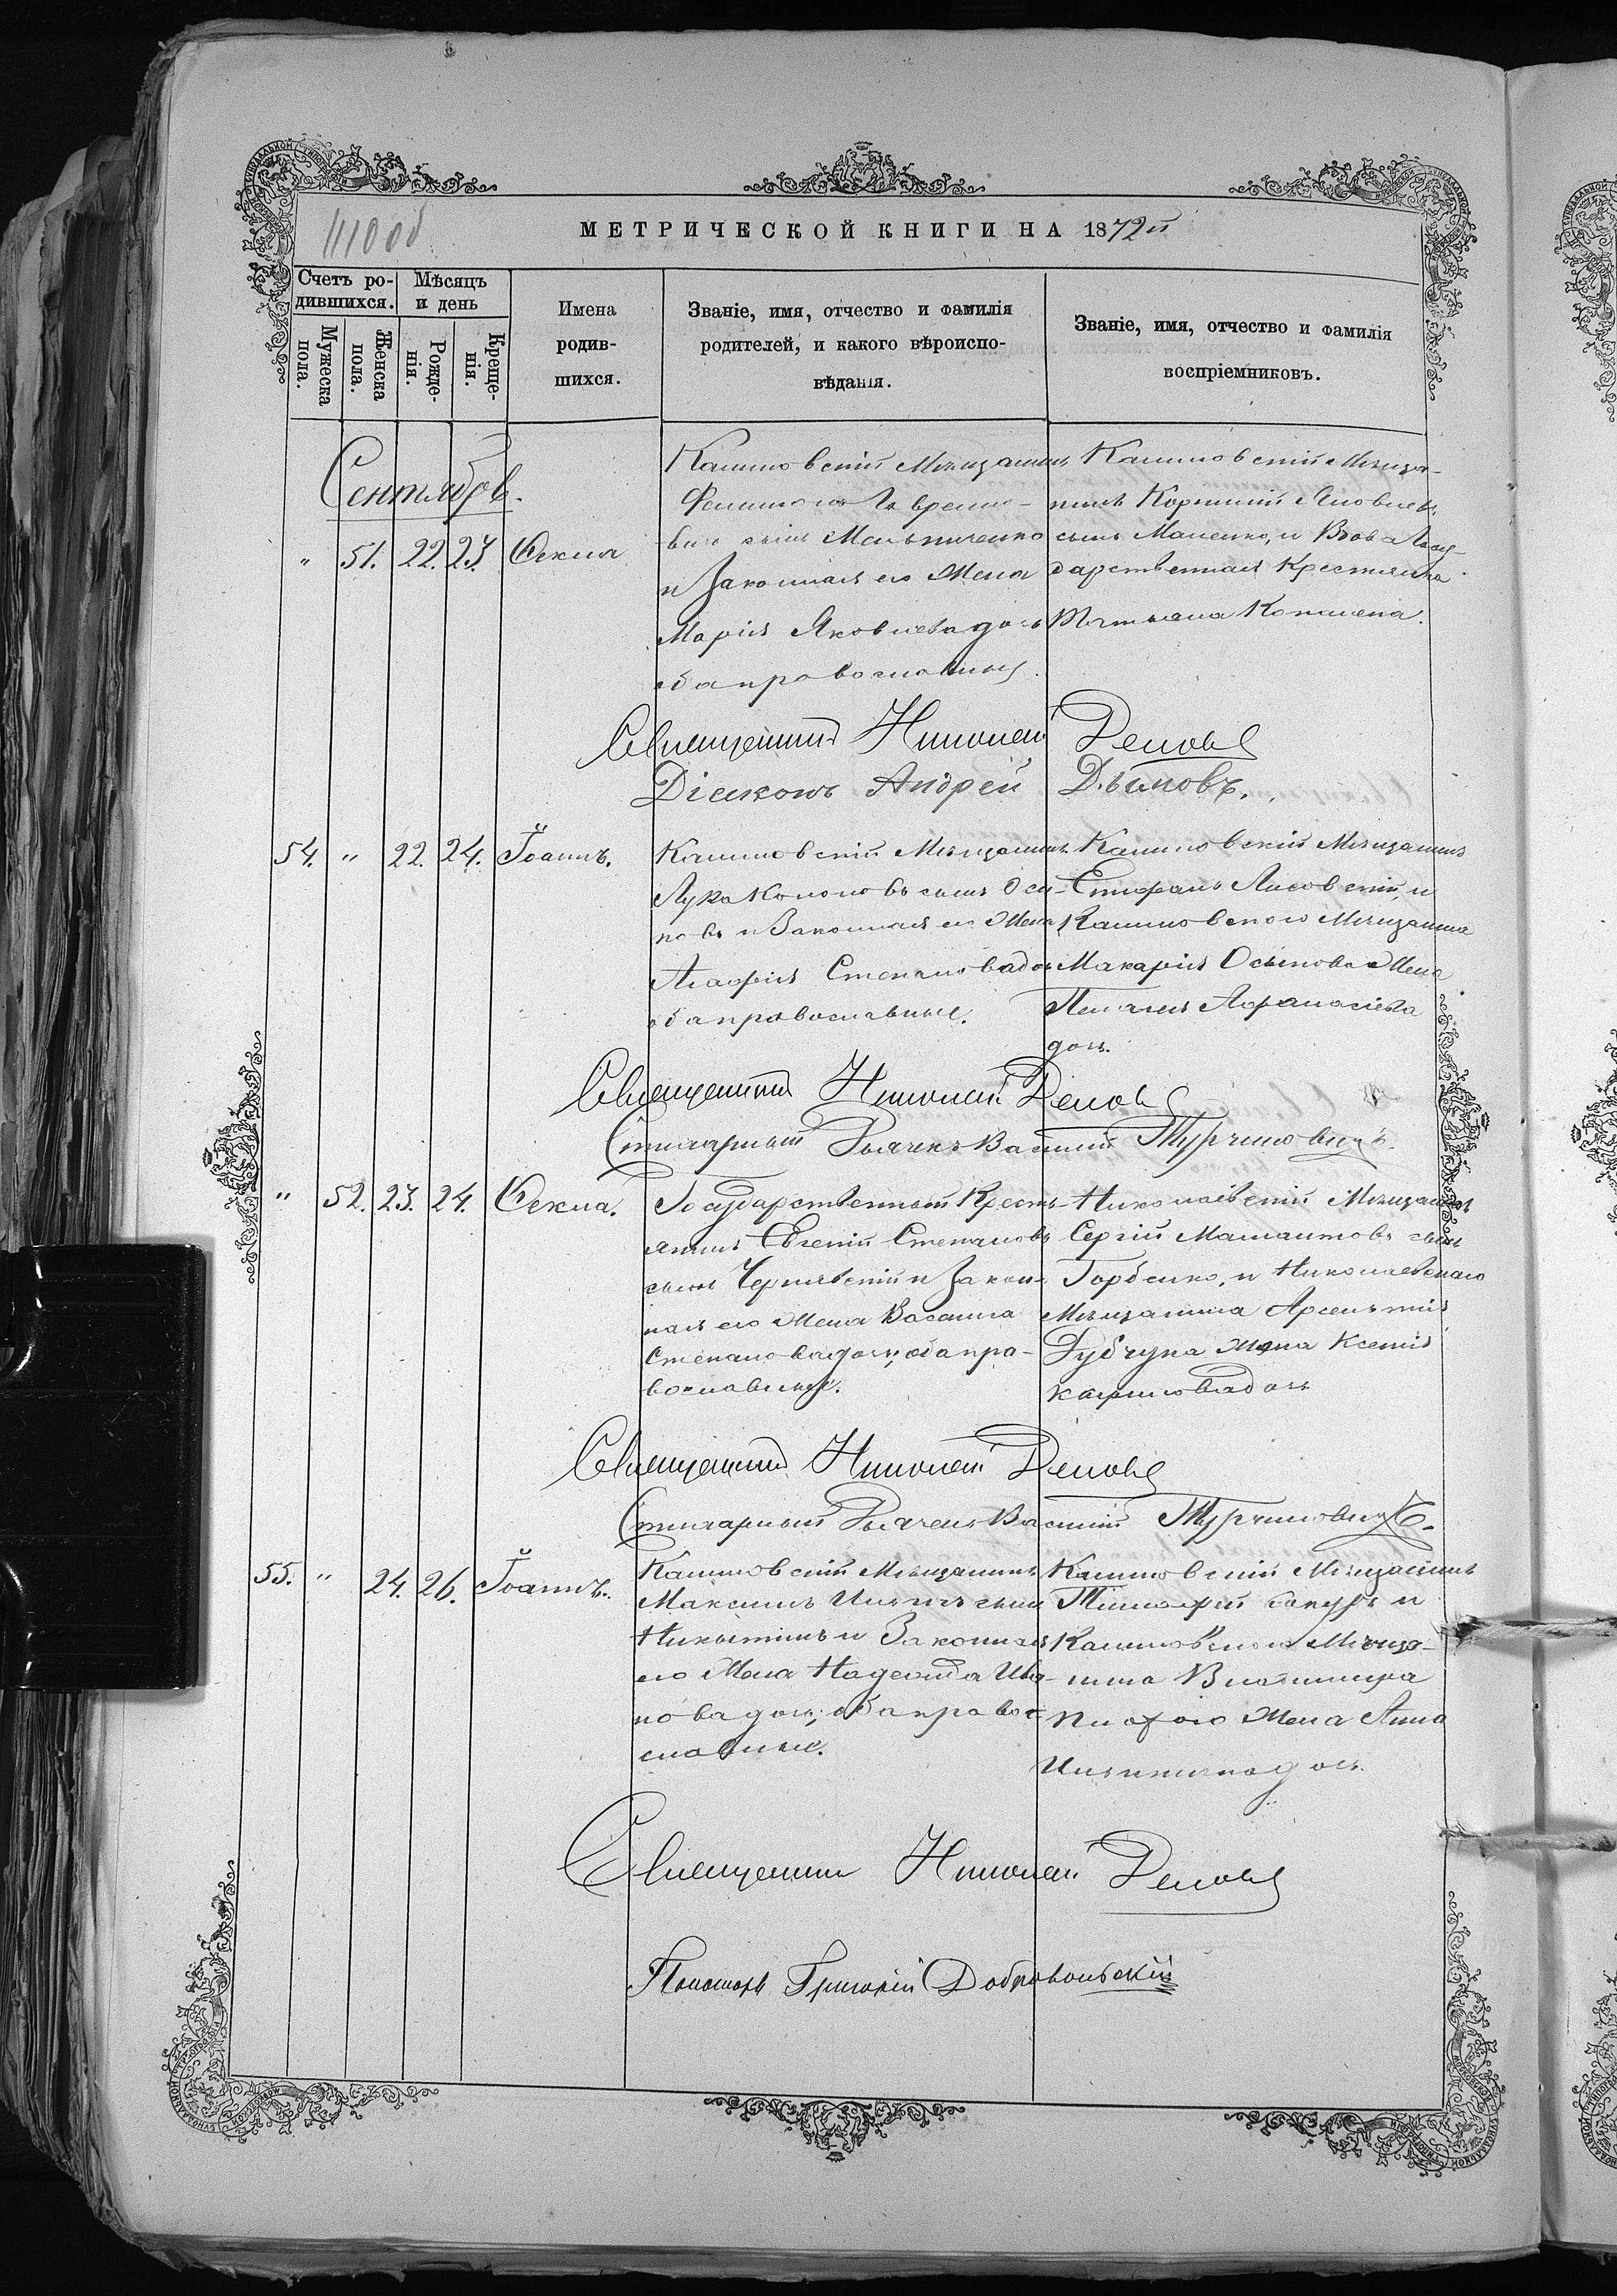 МЕТРИЧЕСКОЙ КНИГИ НА 1872й
Счетъ ро-
дившихся.
Мѣсяцъ
и день
Мужеска
пола.
Женска
пола.
Рожде-
нія.
Креще-
нія.
Имена
родив-
шихся.
Званіе, имя, отчество и фамилія
родителей, и какого вѣроиспо-
вѣданія.
Званіе, имя, отчество и фамилія
воспріемниковъ.
Сентябрь.
" 51. 22. 23. Ѳекла
сынъ Мельниченко
и Законная его Жена
Марія Яковлева дочь
оба православные.
Мѣща-
нинъ Корнилій Яковлевъ
сынъ и Вдова Госу-
дарственная Крестьянка
Татьяна
Священникъ Николай
Діаконъ Андрей Дымовъ.
54. " 22. 24. Іоаннъ.
Мѣщанинъ
Лука сынъ Оси-
повъ и Законная его Жена
Агафія Степанова дочь
оба православные.
Мѣщанинъ
Стефанъ Лисовскій, и
Мѣщанина
Макарія Осипова Жена
Пелагея Афанасіева
дочь.
Священникъ Николай
Стихарный Дьячекъ Василій Турчиновичъ.
" 52. 23. 24. Ѳекла.
Государственный Кресть-
янинъ Евгеній Степановъ
сынъ Чернявскій и Закон-
ная его Жена Васса
Степанова дочь, оба пра-
вославные.
Николаевскій Мѣщанинъ
Сергій сынъ
Горбенко, и Николаевскаго
Мѣщанина Арсентія
Дубчука жена Ксенія
Карпова дочь
Священникъ Николай
Стихарный Дьячекъ Василій Турчиновичъ.
55. " 24. 26. Іоаннъ.
Мѣщанинъ
Максимъ Ильинъ сынъ
Никитинъ и Законная
его Жена Надежда Ива-
нова дочь, оба право-
славные.
Мѣщанинъ
Тимофей и
Мѣща-
нина Владимира
Жена Анна
дочь.
Священникъ Николай
Псаломщ. Григорій Добровольскій